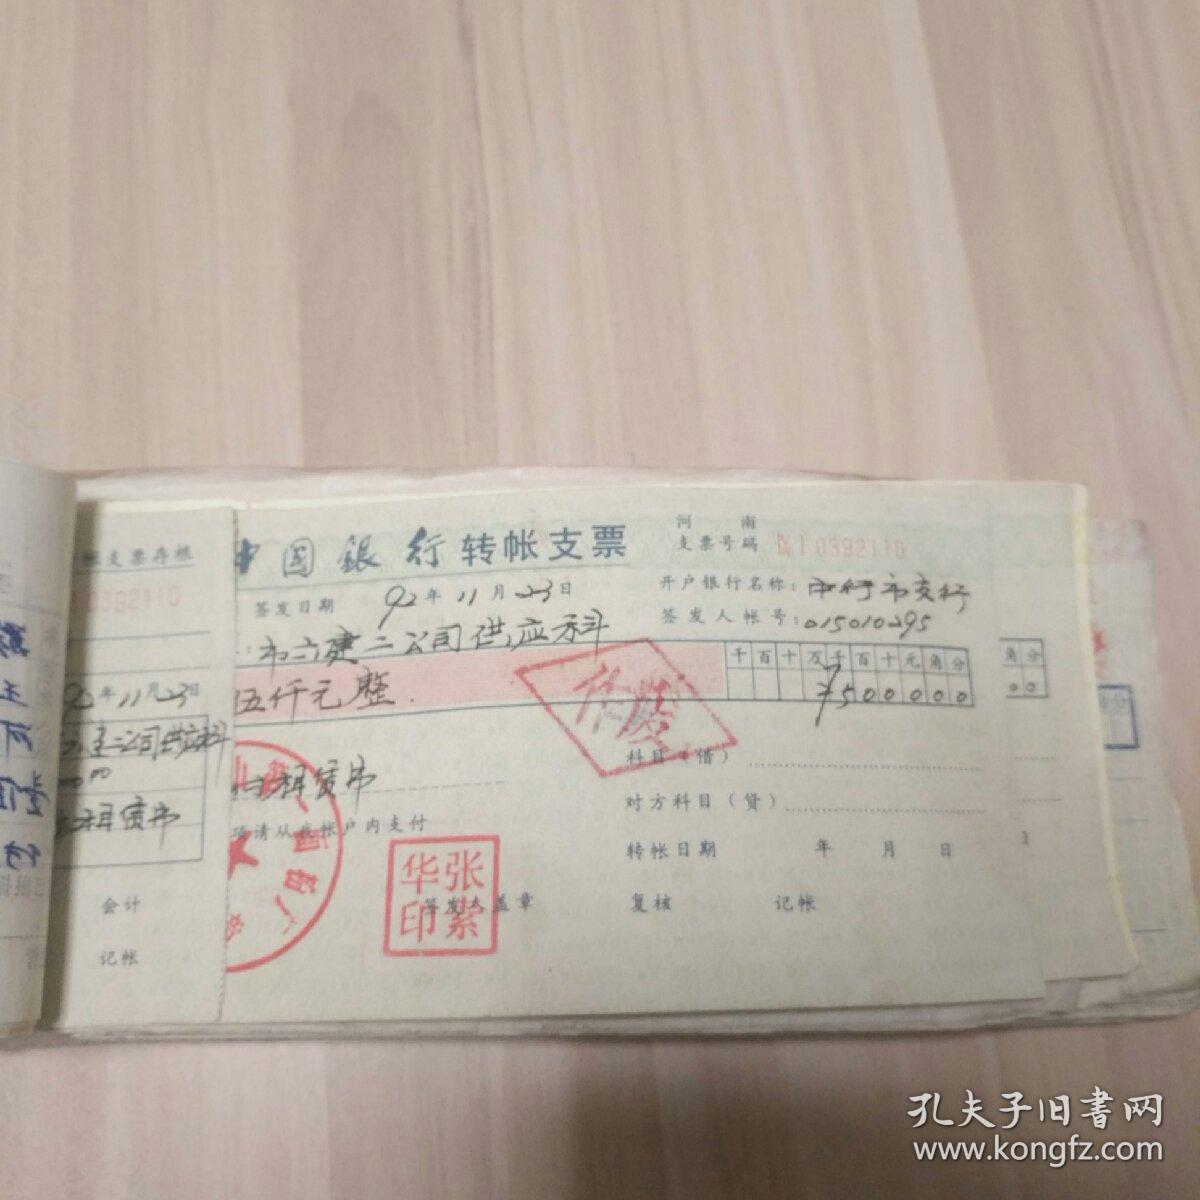 帐支票存根
0392110
92年11月23日
二公司供应科
租赁市
会计
记帐
中国银行转帐支票
河南
支票号码 0392110
签发日期 92年11月23日
开户银行名称:中行市支行
签发人帐号:015010295
市六建二公司供应科
千百十万千百十元角分
伍仟元整
¥500000
角分
00
作废
科目(借)
租赁市
对方科目(贷)
项请从我帐户内支付
转帐日期 年 月 日
张紫华印
签发人盖章
复核 记帐
孔夫子旧书网
www.kongfz.com